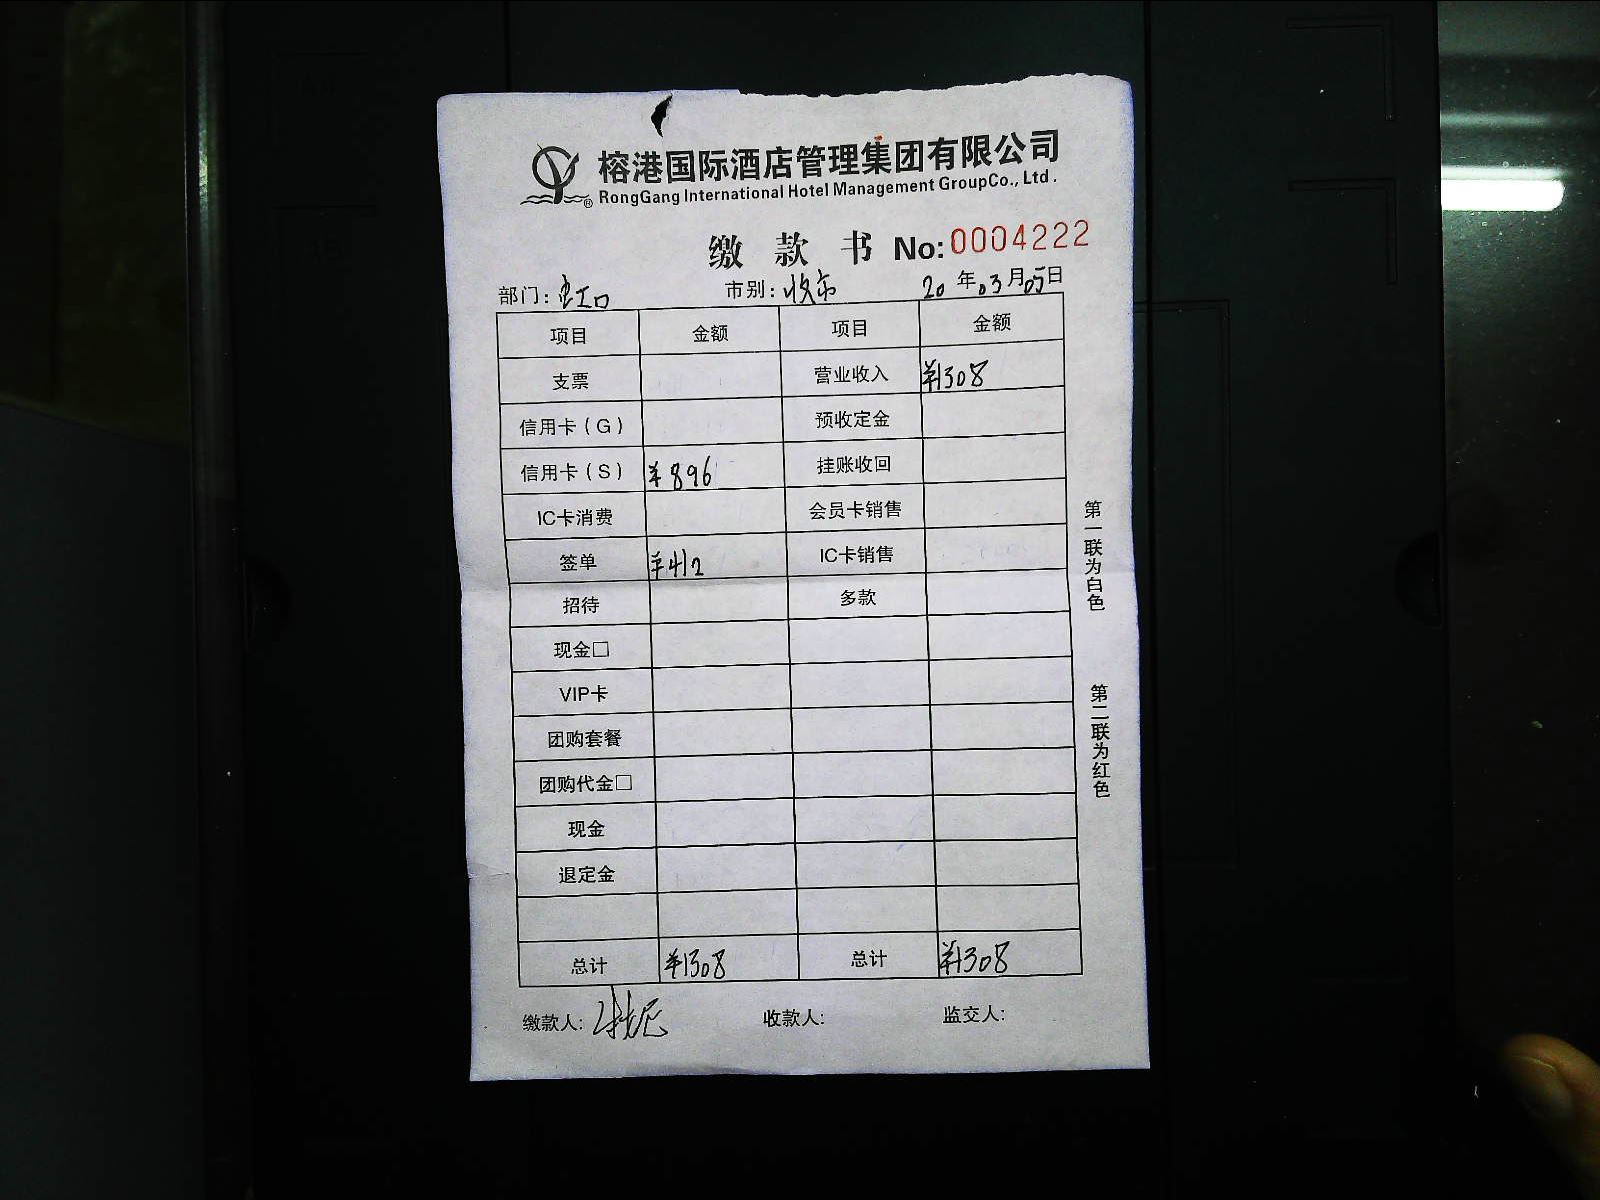 榕港国际酒店管理集团有限公司
RongGang International Hotel Management GroupCo., Ltd.
缴 款 书 No:0004222
部门: 虹口 市别: 收市 20 年 03 月 05 日
项目 金额 项目 金额
支票 营业收入 ¥1308
信用卡(G) 预收定金
信用卡(S) ¥896 挂账收回
IC卡消费 会员卡销售
签单 ¥412 IC卡销售
招待 多款
现金□
VIP卡
团购套餐
团购代金□
现金
退定金
总计 ¥1308 总计 ¥1308
缴款人: 收款人: 监交人:
第一联为白色
第二联为红色